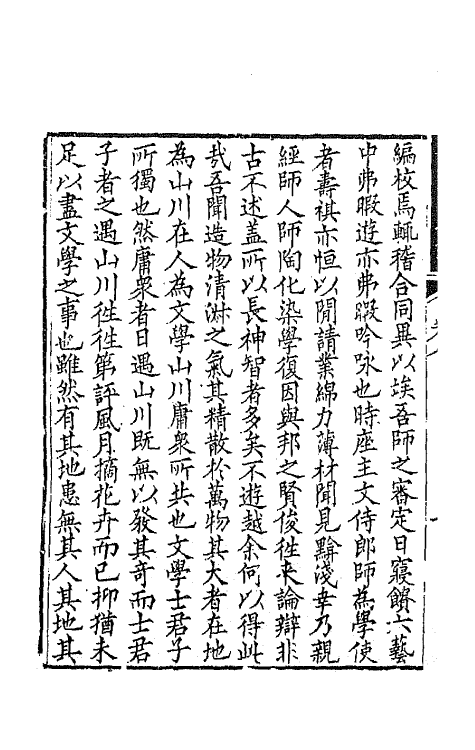 編校焉輒稽合同異以埃吾師之審定日寢饋六藝
中弗暇遊亦弗暇吟咏也時座主文侍郎師為學使
者壽祺亦恒以閒請業綿力薄材聞見黭淺幸乃親
經師人師陶化染學復因與邦之賢俊徃來論辯非
古不述盖所以長神智者多矣不遊越余何以得此
哉吾聞造物清淋之氣其精散於萬物其大者在地
為山川在人為文學山川庸衆所共也文學士君子
所獨也然庸衆者日遇山川既無以發其奇而士君
子者之遇山川徃徃第評風月摘花卉而已抑猶未
足以盡文學之事也雖然有其地患無其人其地其